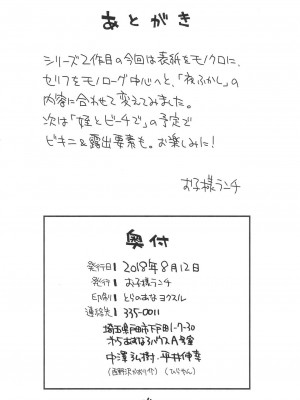 あとがき
シリーズ2作目の今回は表紙をモノクロに、
セリフをモノローグ中心へと、「夜ふかし」の
内容に合わせて変えてみました。
次は「姪とビーチで」の予定で
ビキニ&露出要素も。お楽しみに!
お子様ランチ
奥付
発行日 2018年8月12日
発行 お子様ランチ
印刷 とらのあなヨクスル
連絡先 335-0011
埼玉県戸田市下戸田1-7-30
A号室
中澤 平井伸幸